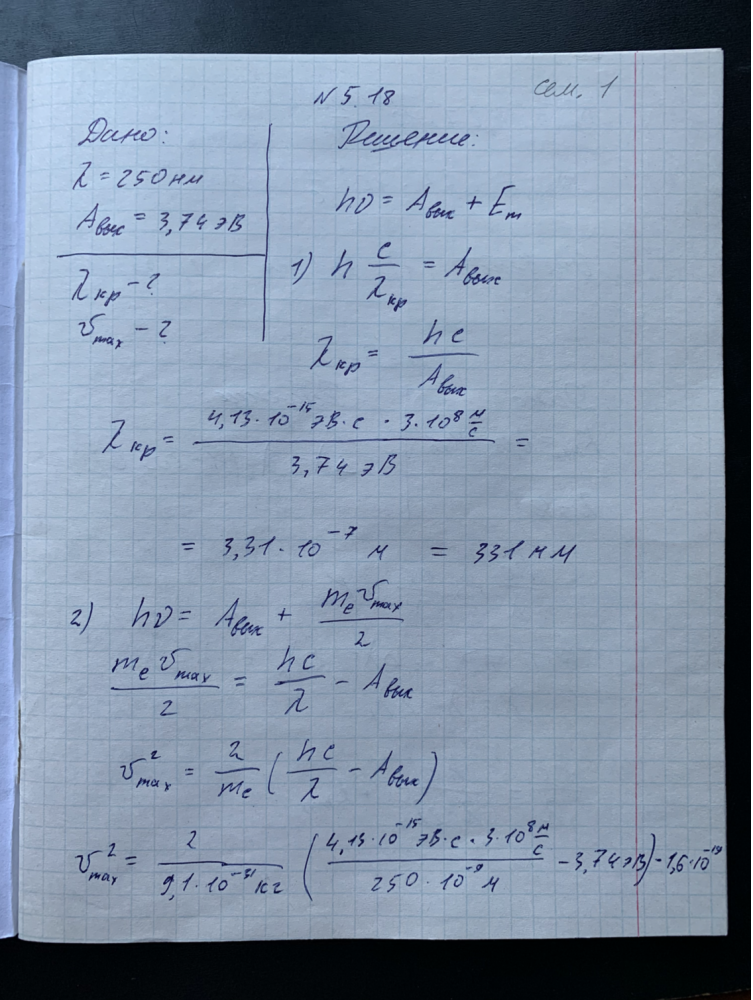 сем. 1
N 5.18
Дано:
λ = 250 нм
Aвых = 3,74 эВ
λкр - ?
υmax - ?
Решение:
hν = Aвых + Em
1) h c/λкр = Aвых
λкр = hc/Aвых
λкр = 4,13·10⁻¹⁵ эВ·с · 3·10⁸ м/с / 3,74 эВ =
= 3,31·10⁻⁷ м = 331 нм
2) hν = Aвых + meυmax/2
meυmax/2 = hc/λ - Aвых
υ²max = 2/me (hc/λ - Aвых)
υ²max = 2/9,1·10⁻³¹ кг (4,13·10⁻¹⁵ эВ·с · 3·10⁸ м/с / 250·10⁻⁹ м - 3,74 эВ) · 1,6·10⁻¹⁹